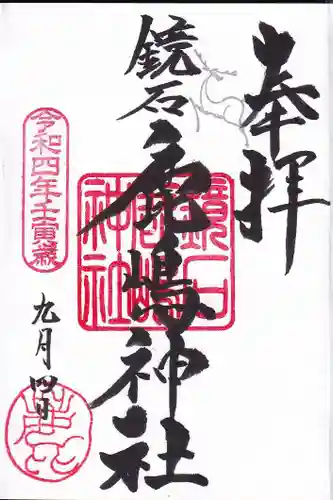 奉拝
鏡石
鹿嶋神社
鏡石
鹿嶋
神社
令和四年壬寅歳
九月四日
鹿